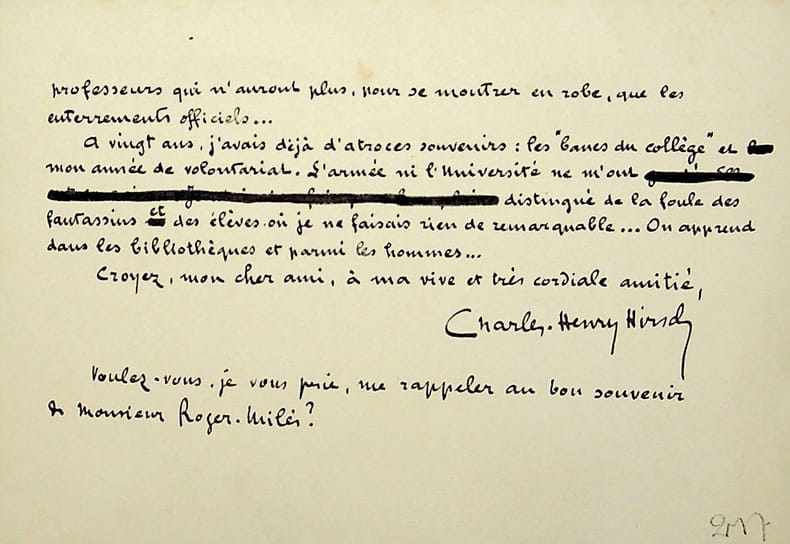 professeurs qui n'auront plus, pour se montrer en robe, que les
enterrements officiels...
A vingt ans, j'avais déjà d'atroces souvenirs : les "bancs du collège" et
mon année de volontariat. L'armée ni l'Université ne m'ont
distingué de la foule des
fantassins et des élèves où je ne faisais rien de remarquable... On apprend
dans les bibliothèques et parmi les hommes...
Croyez, mon cher ami, à ma vive et très cordiale amitié,
Charles-Henry Hirsch
Voulez-vous, je vous prie, me rappeler au bon souvenir
de Monsieur Roger-Milès?